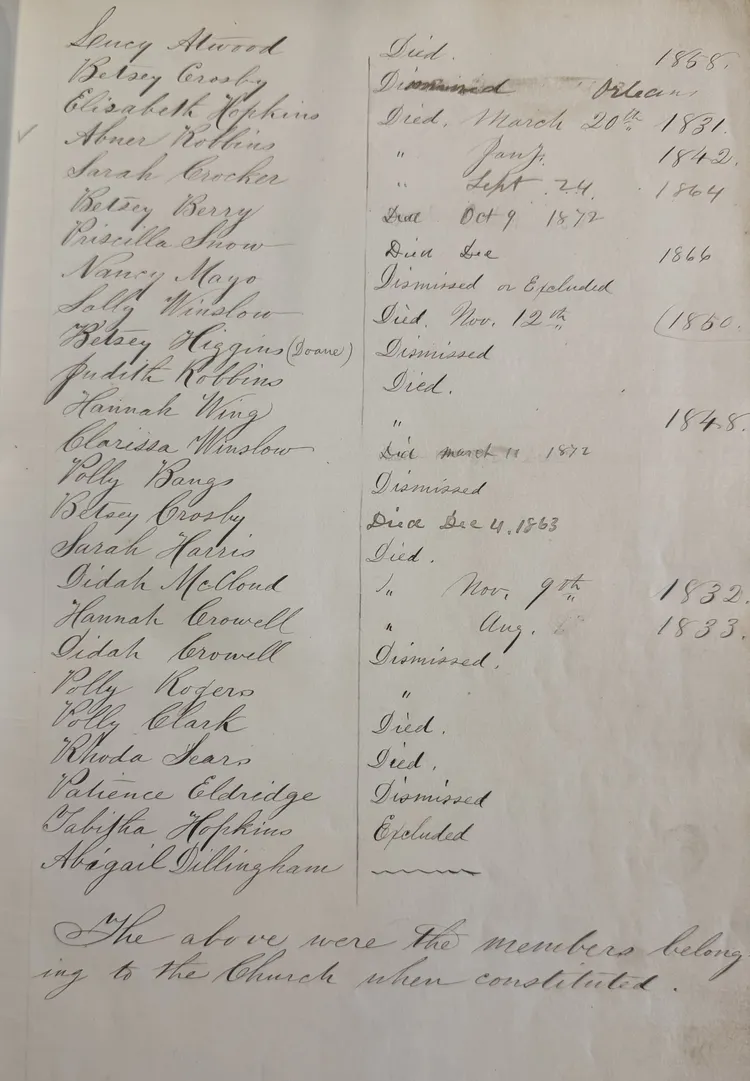 Lucy Atwood Died. 1858.
Betsey Crosby Dismissed Orleans
Elisabeth Hopkins Died. March 20th 1831.
Abner Robbins " Jany. 1842.
Sarah Crocker " Sept 24. 1864
Betsey Berry Died Oct 9 1872
Priscilla Snow Died Dec 1866
Nancy Mayo Dismissed or Excluded
Sally Winslow Died. Nov. 12th (1850.
Betsey Higgins (Doane) Dismissed
Judith Robbins Died.
Hannah Wing " 1848.
Clarissa Winslow Died march 1872
Polly Bangs Dismissed
Betsey Crosby Died Dec 4. 1863
Sarah Harris Died.
Didah McCloud " Nov. 9th 1832.
Hannah Crowell " Aug. 1833.
Didah Crowell Dismissed.
Polly Rogers "
Polly Clark Died.
Rhoda Sears Died.
Patience Eldridge Dismissed
Tabitha Hopkins Excluded
Abigail Dillingham
The above were the members belong
ing to the Church when constituted.